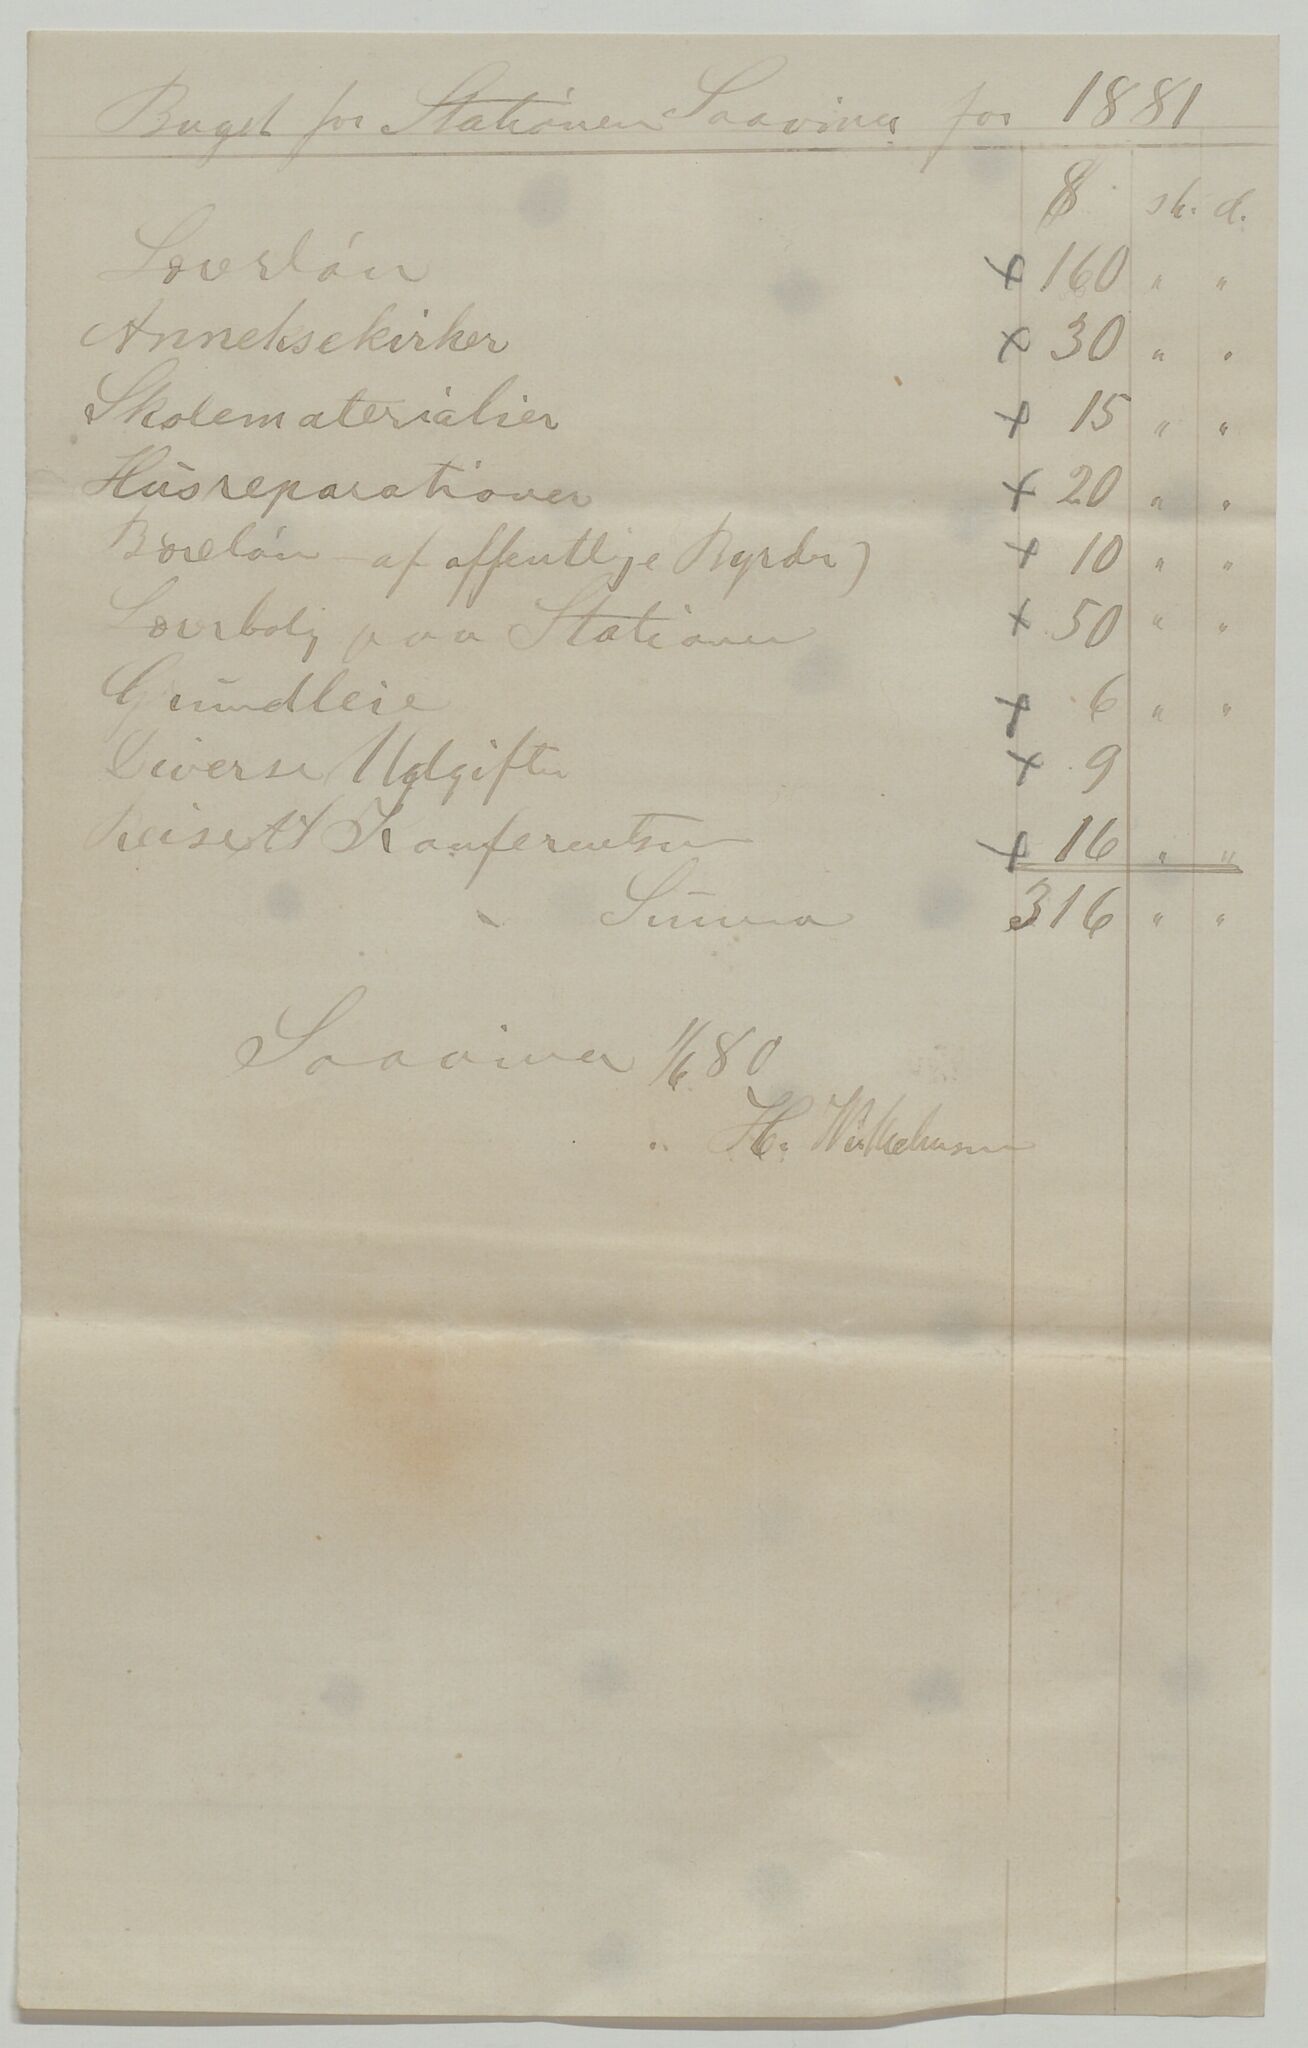 Buget for Stationen Soavina for 1881
£ sh. d.
Lærerløn × 160 " "
Annekskirker × 30 " "
Skolematerialier × 15 " "
Husreparationer × 20 " "
Bæreløn af offentlige Byrder) × 10 " "
Lærerbolig paa Stationen × 50 " "
Grundleie × 6 " "
Diverse Udgifter × 9
Reise til Konferentsen × 16 " "
Summa 316 " "
Soavina 1/6 80
H.